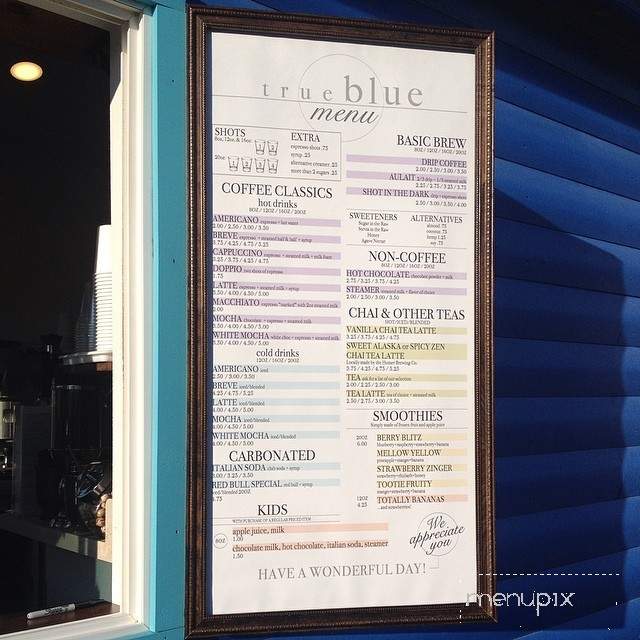 true blue
menu
SHOTS
8oz, 12oz, & 16oz:
20oz:
EXTRA
espresso shots .75
syrup .25
alternative creamer .25
more than 2 sugars .25
COFFEE CLASSICS
hot drinks
8OZ / 12OZ / 16OZ / 20OZ
AMERICANO espresso + hot water
2.00 / 2.50 / 3.00 / 3.50
BREVE espresso + steamed half & half + syrup
3.75 / 4.25 / 4.75 / 5.25
CAPPUCCINO espresso + steamed milk + milk foam
3.25 / 3.75 / 4.25 / 4.75
DOPPIO two shots of espresso
1.75
LATTE espresso + steamed milk + syrup
3.50 / 4.00 / 4.50 / 5.00
MACCHIATO espresso "marked" with 2oz steamed milk
2.00
MOCHA chocolate + espresso + steamed milk
3.50 / 4.00 / 4.50 / 5.00
WHITE MOCHA white choc + espresso + steamed milk
3.50 / 4.00 / 4.50 / 5.00
cold drinks
12OZ / 16OZ / 20OZ
AMERICANO iced
2.50 / 3.00 / 3.50
BREVE iced/blended
4.25 / 4.75 / 5.25
LATTE iced/blended
4.00 / 4.50 / 5.00
MOCHA iced/blended
4.00 / 4.50 / 5.00
WHITE MOCHA iced/blended
4.00 / 4.50 / 5.00
CARBONATED
ITALIAN SODA club soda + syrup
3.00 / 3.25 / 3.50
RED BULL SPECIAL red bull + syrup
iced/blended 20OZ
4.75
KIDS
WITH PURCHASE OF A REGULAR PRICED ITEM
8OZ
apple juice, milk
1.00
chocolate milk, hot chocolate, italian soda, steamer
1.50
BASIC BREW
8OZ / 12OZ / 16OZ / 20OZ
DRIP COFFEE
2.00 / 2.50 / 3.00 / 3.50
AU LAIT 2/3 drip + 1/3 steamed milk
2.25 / 2.75 / 3.25 / 3.75
SHOT IN THE DARK drip + espresso shots
2.50 / 3.00 / 3.50 / 4.00
SWEETENERS
Sugar in the Raw
Stevia in the Raw
Honey
Agave Nectar
ALTERNATIVES
almond .75
coconut .75
hemp 1.25
soy .75
NON-COFFEE
8OZ / 12OZ / 16OZ / 20OZ
HOT CHOCOLATE chocolate powder + milk
2.75 / 3.25 / 3.75 / 4.25
STEAMER steamed milk + flavor of choice
2.00 / 2.50 / 3.00 / 3.50
CHAI & OTHER TEAS
HOT/ICED/BLENDED
VANILLA CHAI TEA LATTE
3.25 / 3.75 / 4.25 / 4.75
SWEET ALASKA or SPICY ZEN
CHAI TEA LATTE
Locally made by the Homer Brewing Co.
3.75 / 4.25 / 4.75 / 5.25
TEA ask for a list of our selection
2.00 / 2.25 / 2.50 / 3.00
TEA LATTE tea of choice + steamed milk
2.50 / 2.75 / 3.00 / 3.50
SMOOTHIES
Simply made of frozen fruit and apple juice
20OZ
6.00
BERRY BLITZ
blueberry+raspberry+strawberry+banana
MELLOW YELLOW
pineapple+mango+banana
STRAWBERRY ZINGER
strawberry+rhubarb+honey
TOOTIE FRUITY
mango+strawberry+banana
12OZ
4.25
TOTALLY BANANAS
...and strawberries!
We
appreciate
you
HAVE A WONDERFUL DAY!
menupix